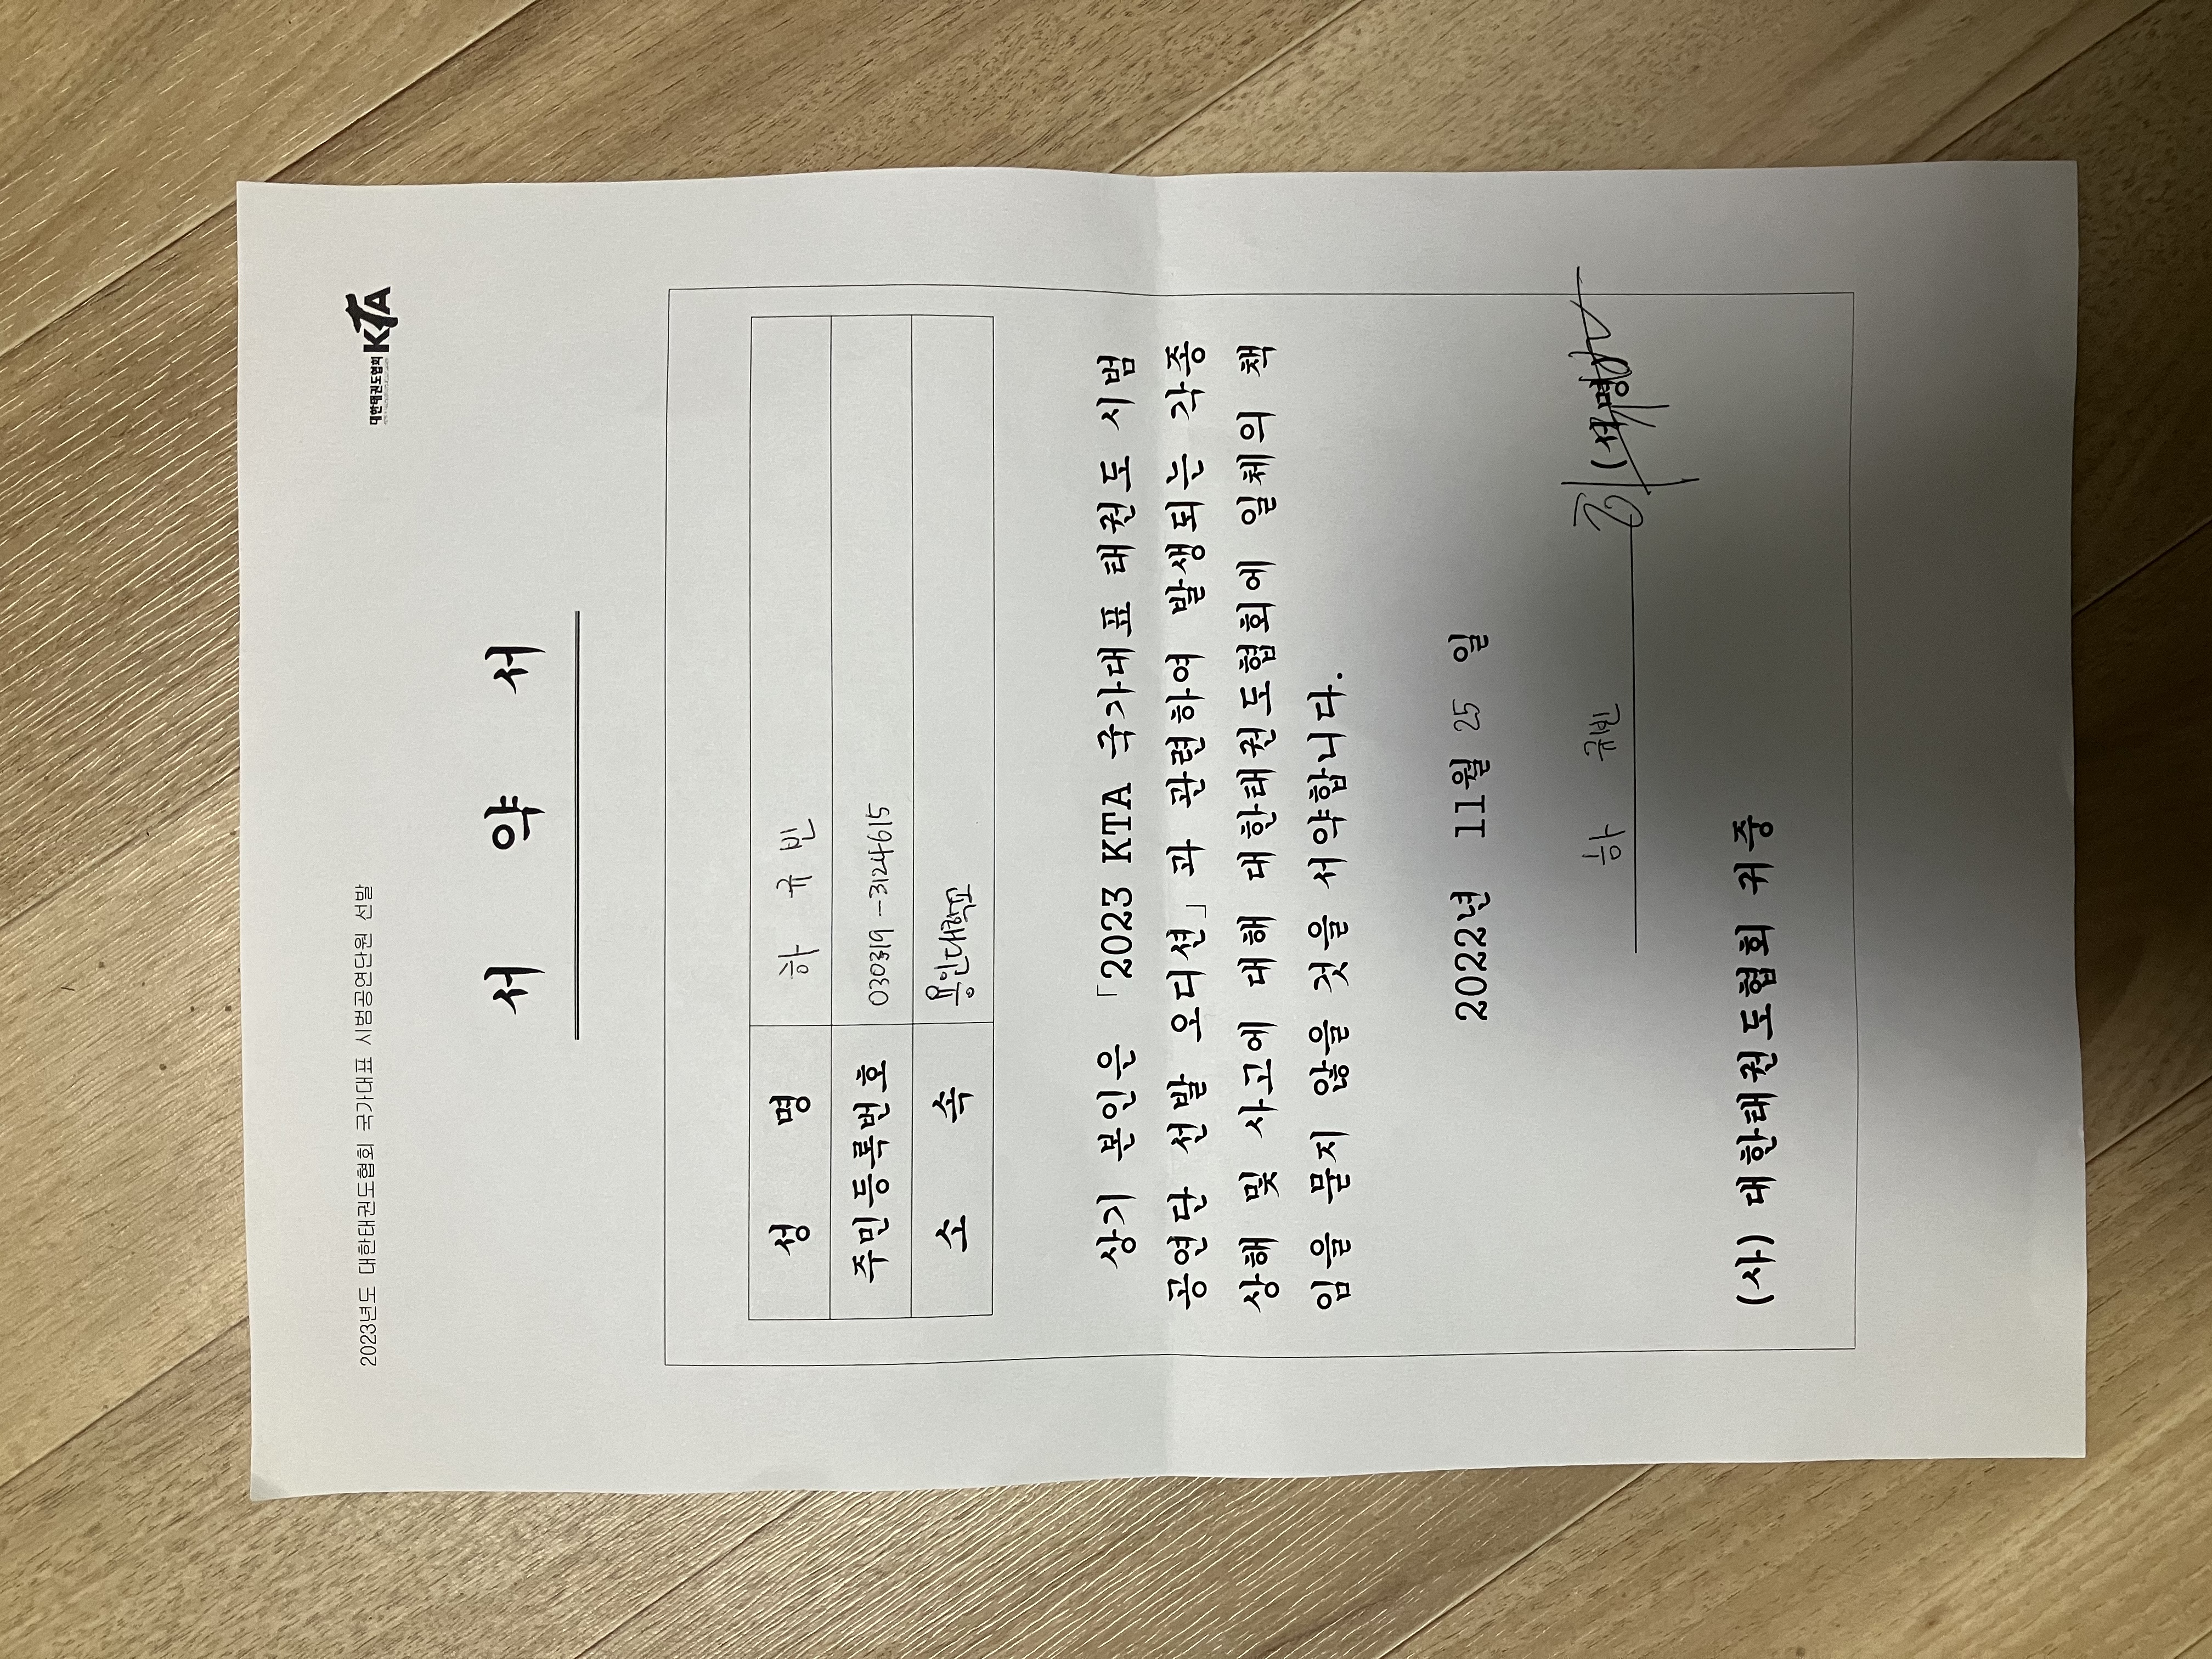 2023년도 대한태권도협회 국가대표 시범공연단원 선발
대한태권도협회 KTA
서 약 서
성 명 하 규 빈
주민등록번호 030319-3124615
소 속 용인대학교
상기 본인은 「2023 KTA 국가대표 태권도 시범
공연단 선발 오디션」과 관련하여 발생되는 각종
상해 및 사고에 대해 대한태권도협회에 일체의 책
임을 묻지 않을 것을 서약합니다.
2022년 11월 25 일
하 규빈 (서명)
(사) 대한태권도협회 귀중